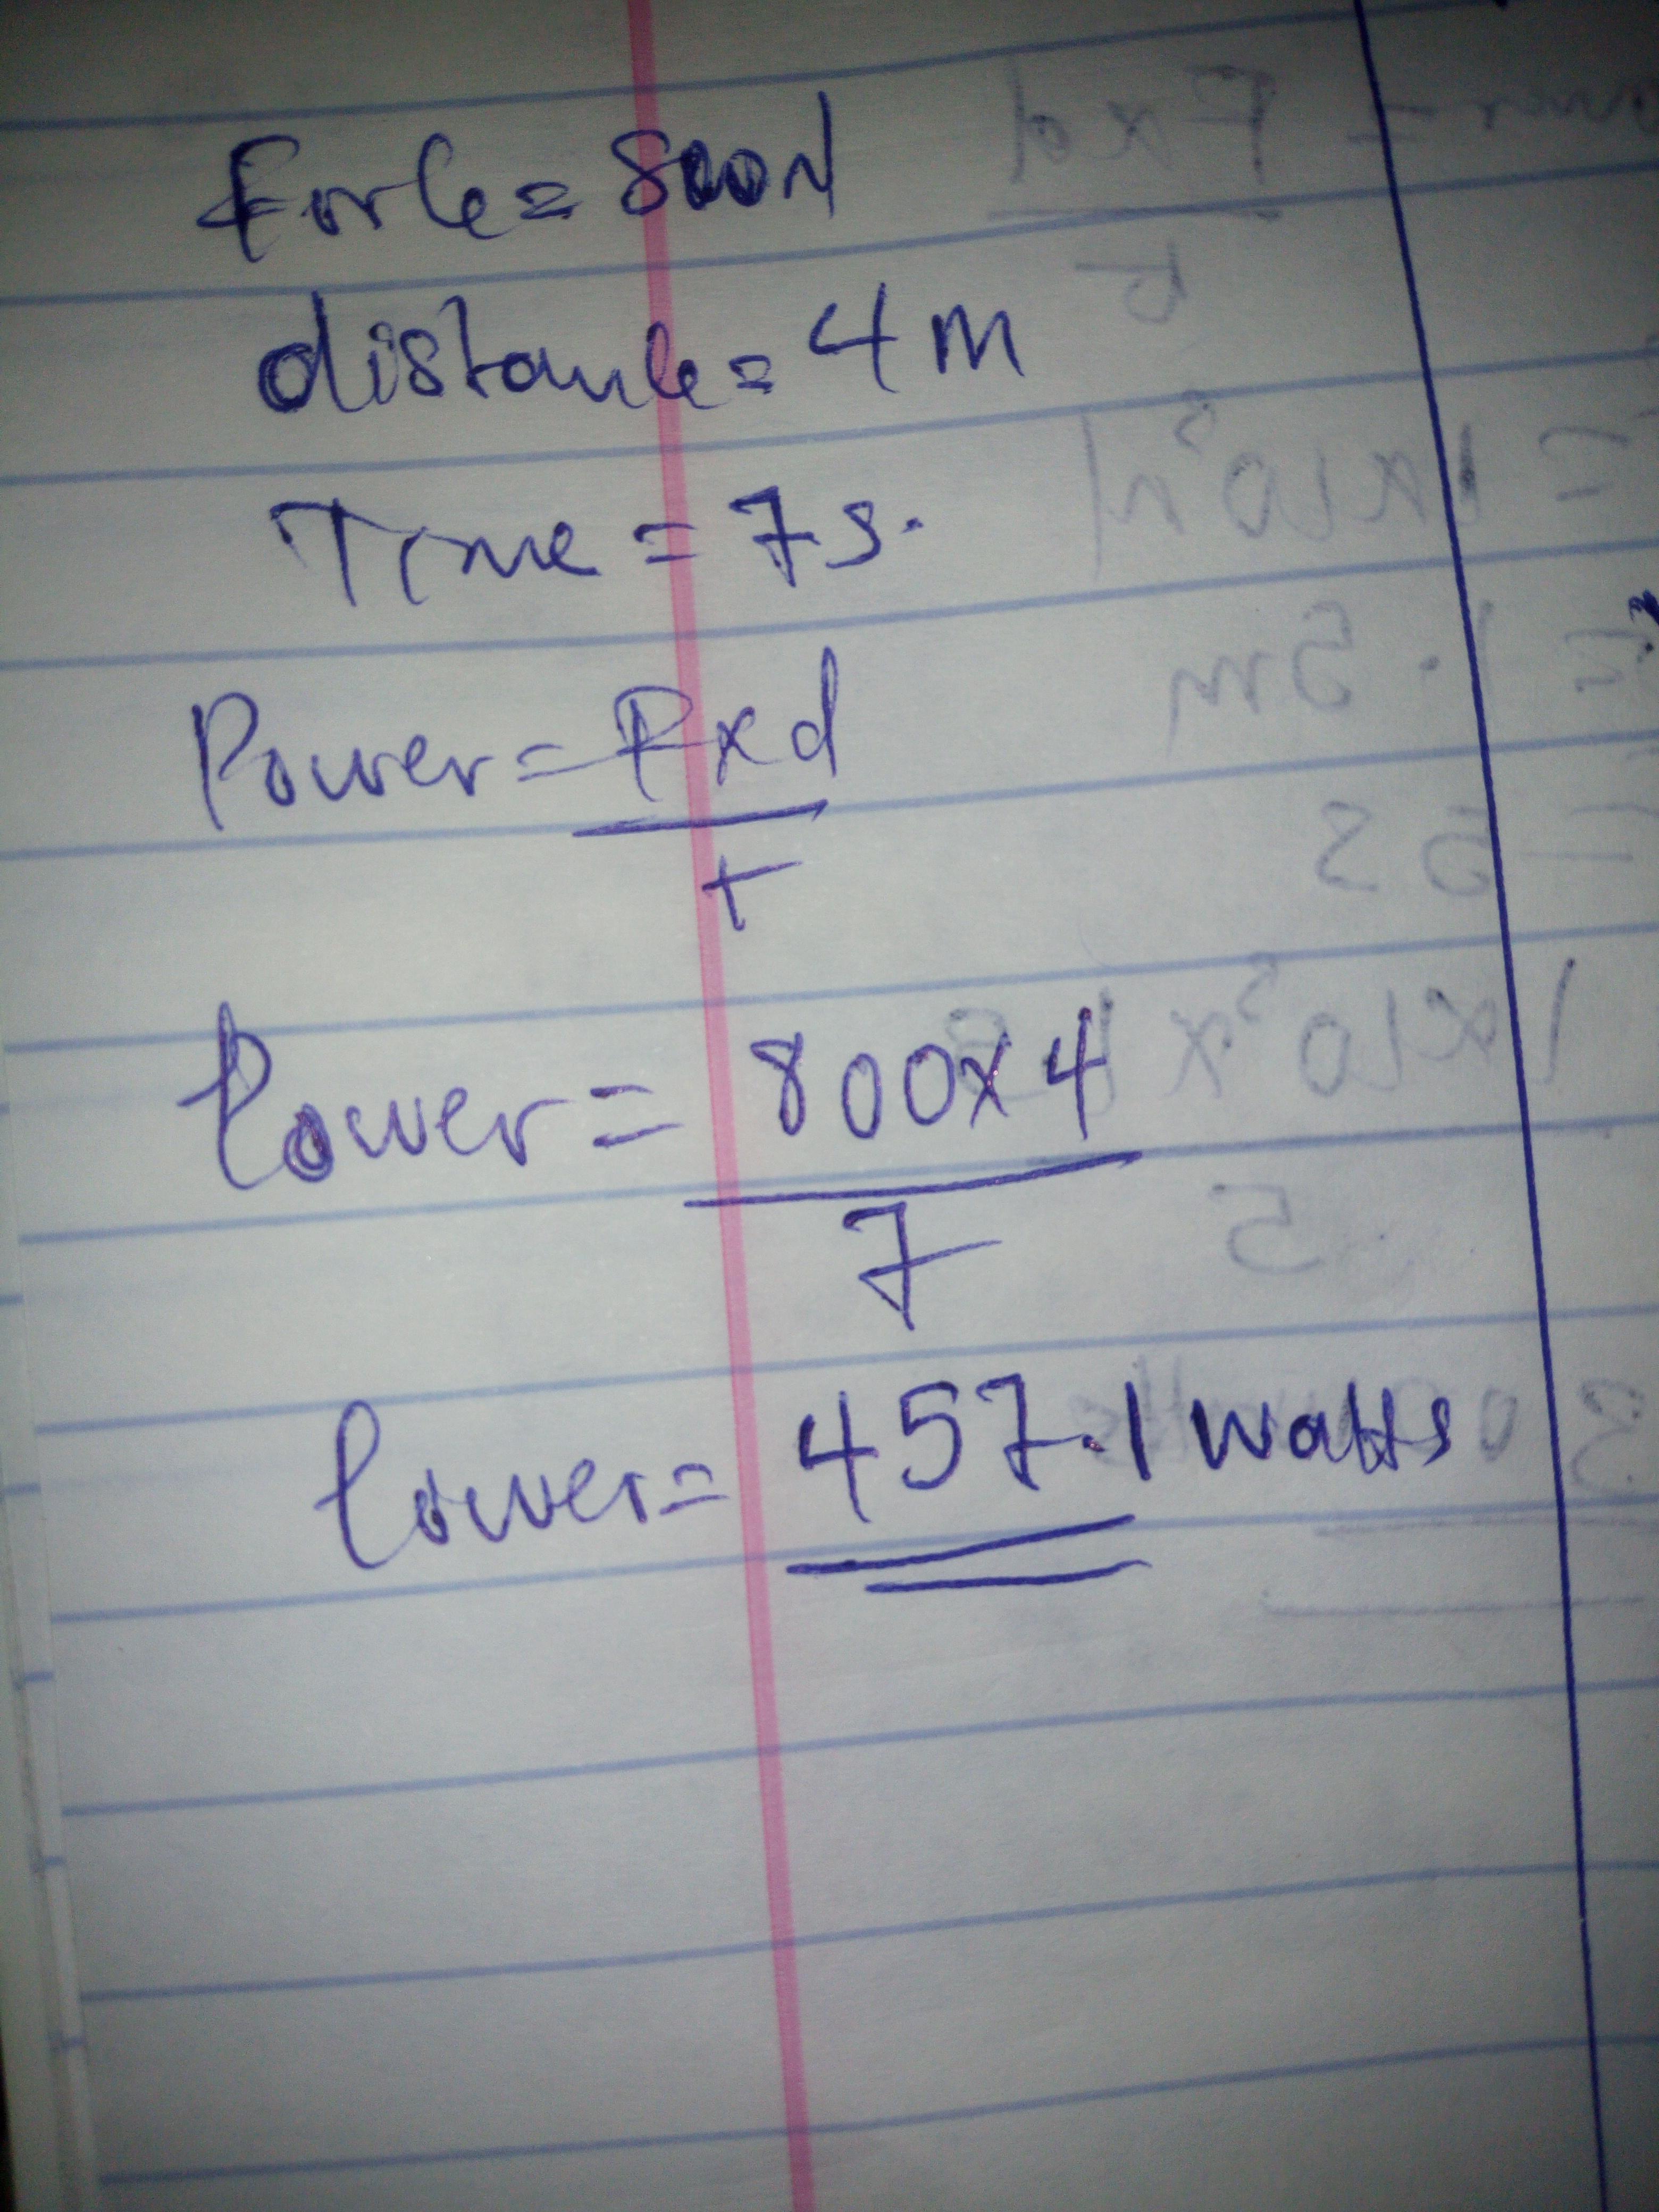 Force = 800N
distance = 4m
Time = 7s.
Power = Fxd
t
Power = 800x4
7
Power = 457.1 watts